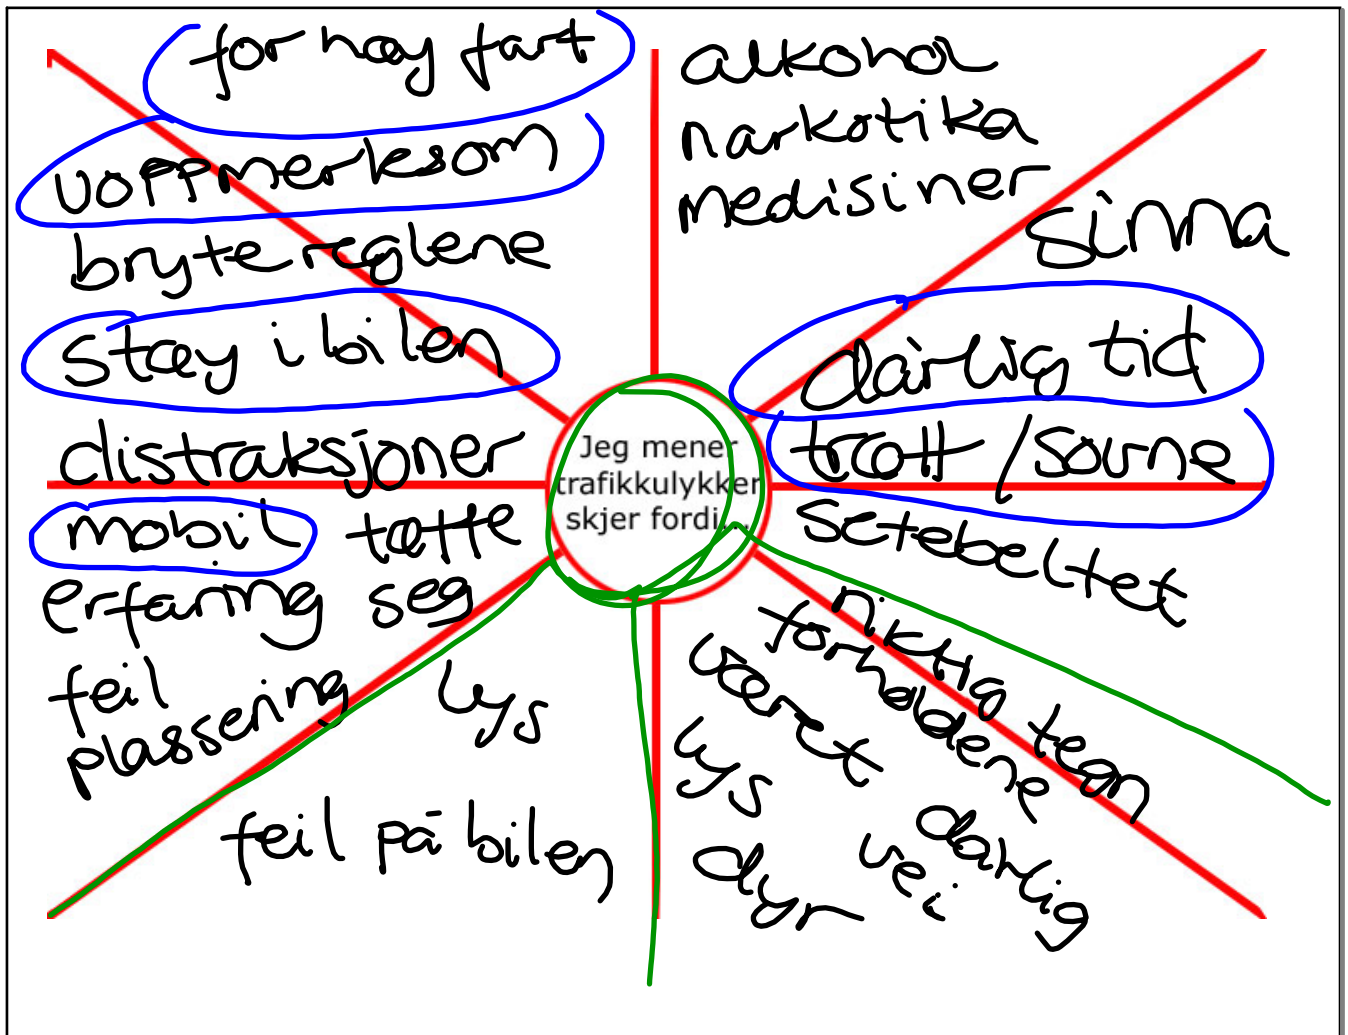 for høy fart
uoppmerksom
bryte reglene
støy i bilen
distraksjoner
mobil tøffe
erfaring seg
feil
plassering
lys
feil på bilen
alkohol
narkotika
medisiner
sinna
dårlig tid
trøtt/sovne
setebeltet
Jeg mener
trafikkulykker
skjer fordi...
riktig tegn
forholdene
været
lys
dyr
dårlig
vei